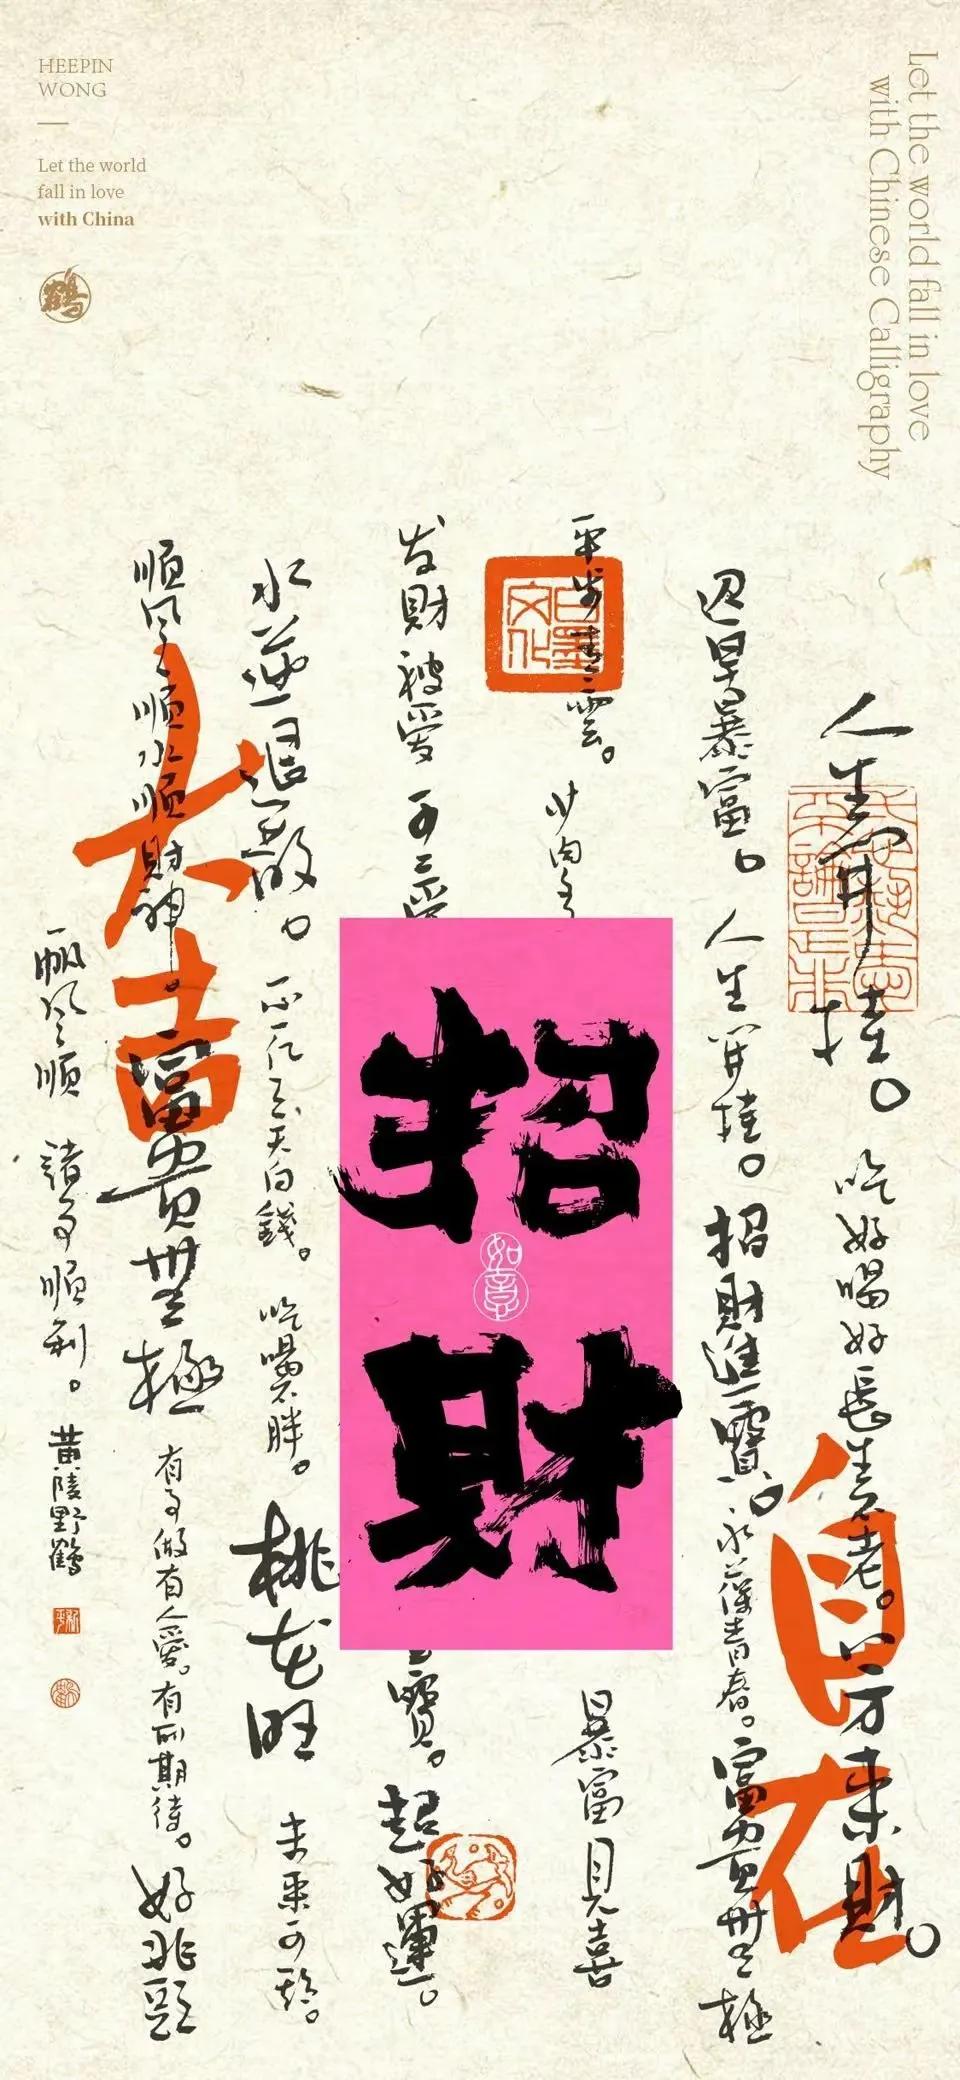 HEEPIN
WONG
Let the world
fall in love
with China
鶴
Let the world fall in love
with Chinese Calligraphy
人生開挂。吃好喝好長生不老。八方来財。
自在
迟早暴富。人生開挂。招財進寶。永葆青春。富貴無極
平步青雲。
暴富見喜
白墨文化
招財
如意
发財被愛
寶。超好運。
水逆退散。不仁天白錢。吃喝不胖。桃花旺 未来可期。
大吉
順風順水順財神。富貴無極 有事做有人愛。有所期待。好兆頭
一帆風順 諸事順利。黄陵野鶴